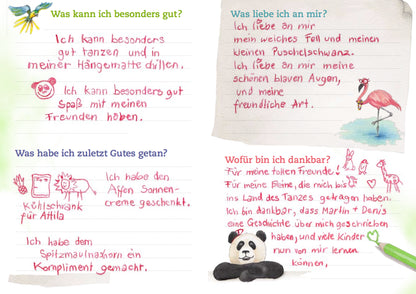 Was kann ich besonders gut?
Ich kann besonders
gut tanzen und in
meiner Hängematte chillen.
Ich kann besonders gut
Spaß mit meinen
Freunden haben.
Was habe ich zuletzt Gutes getan?
Ich habe den
Affen Sonnen-
creme geschenkt.
Kühlschrank
für Attila
Ich habe dem
Spitzmaulnashorn ein
Kompliment gemacht.
Was liebe ich an mir?
Ich liebe an mir
mein weiches Fell und meinen
kleinen Puschelschwanz.
Ich liebe an mir meine
schönen blauen Augen,
und meine
freundliche Art.
Wofür bin ich dankbar?
Für meine tollen Freunde!
Für meine Beine, die mich bis
ins Land des Tanzes getragen haben.
Ich bin dankbar, dass Martin + Denis
eine Geschichte über mich geschrieben
haben, und viele Kinder
nun von mir lernen
können.